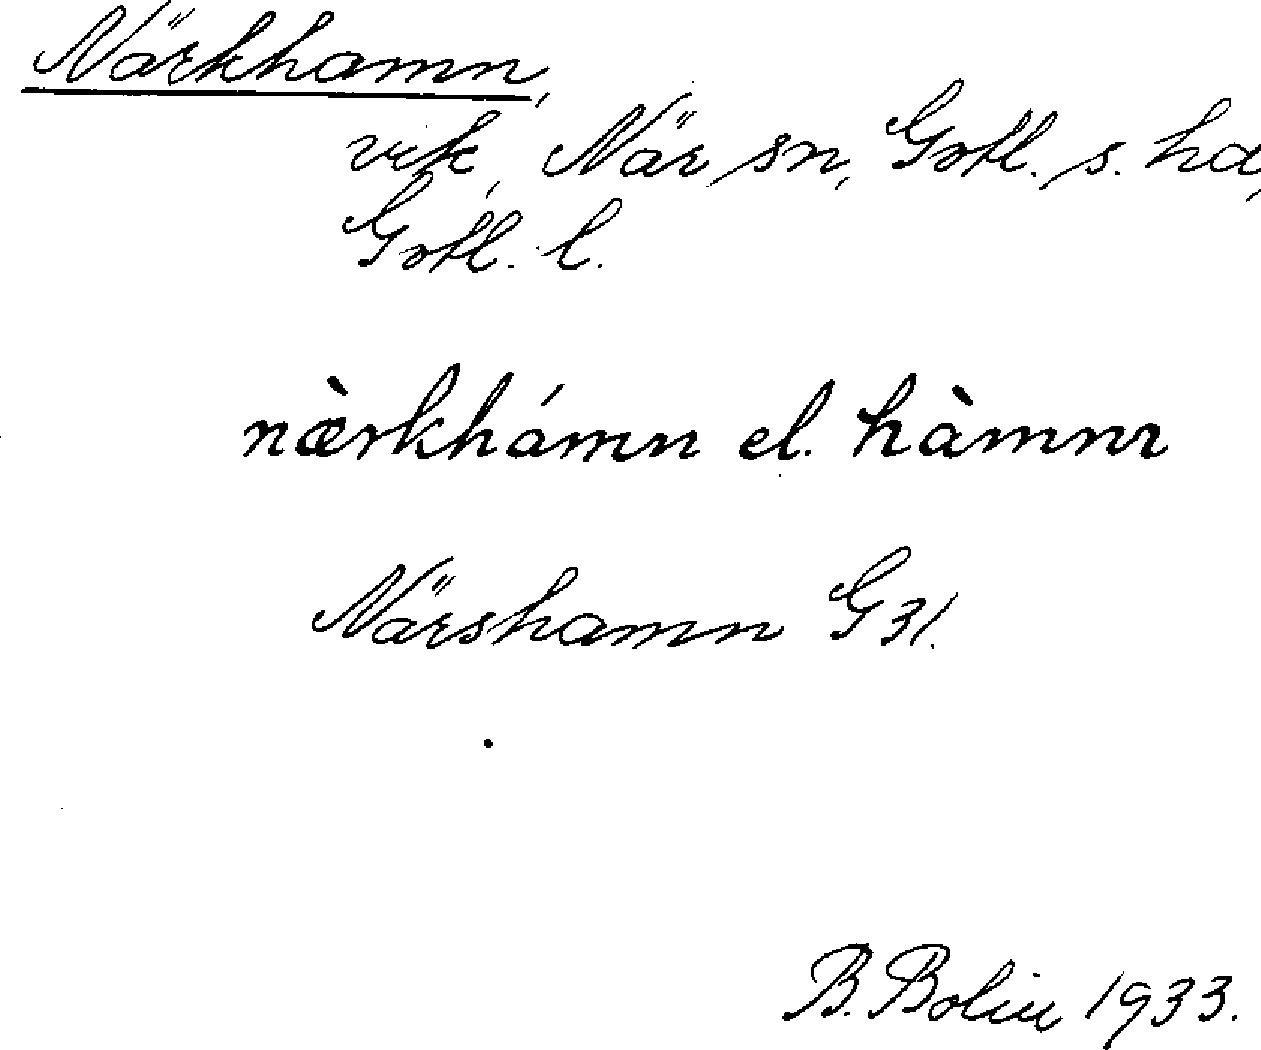 Närkhamn,
vik, När sn, Gotl. s. hd,
Gotl. l.
næ̀rkhámn el. hàmnr
Närshamn G31.
B. Bolin 1933.